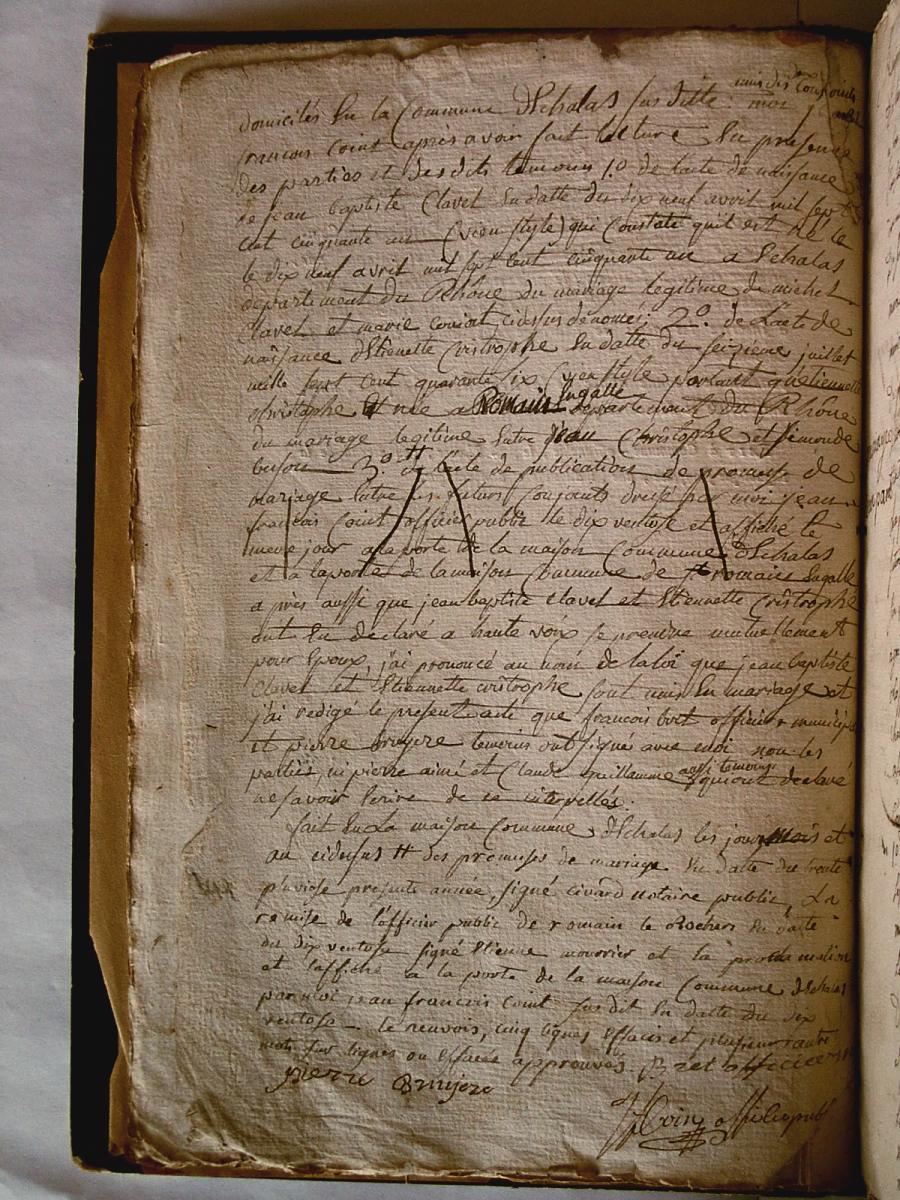 unis des deux conjoints
domicilés En la Commune dEchalas sus ditte: moi j
francois coint apres avoir fait lecture En presence
des parties et desdits temoins 1.o de lacte de naissance
de jean baptiste Clavel En datte du dix neuf avril mil sept
cent cinquante un (vieu style) qui Constate quil est né le
le dix neuf avril mil sept cent cinquante un a Echalas
departement du Rhône du mariage legitime de michel
Clavel et marie cidessus denomés; 2.o de Lacte de
naissance dEtienette Cristrophe En datte du seizieme juillet
mille sept cent quarante six (vieu style portant quetiennette
christophe Est née a Romain Engalle departement du Rhône
du mariage legitime Entre jean Christophe et Simonde
buson 3.o de lacte de publication de promesse de
mariage Entre les futurs Conjoints dressé par moi jean
francois Coint officier public le dix ventose et affiché le
meme jour a la porte de la maison Commune dEchalas
et a la porte de la maison Commune de st romain Engalle
a près aussi que jean baptiste Clavel et Etiennette Cristrophe
ont En declaré a haute voix se prendre mutuellement
pour Epoux, j'ai prononcé au nom de la loi que jean baptiste
Clavel et Etiennette cristrophe sont unis En mariage et
j'ai redigé le present acte que francois officier municip
et pierre bruyere temoins ont signés avec moi non les
parties ni pierre aimé et Claude guillaumme aussi temoins quiont declaré
ne savoir Ecrire de ce interpellés.
fait En La maison Commune dEchalas les jour mois et
an cidessus # des promesses de mariage En datte du trente
pluviose presente année, signé civard notaire public, La
remise de l'officier public de romain le Rocher En datte
du dix ventose signé Etienne mourier et la proclamation
et laffiche a la porte de la maison Commune dEchalas
par moi jean francois Coint sus dit En datte du dix
ventose - le renvois, cinq lignes Effacés et plusieurs autre
mots sur lignes ou effacés approuvés.
pierre Bruyere
JfCoint officie publ